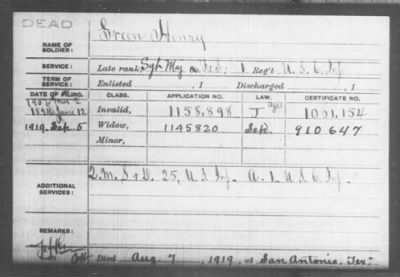 DEAD
NAME OF SOLDIER: Green Henry
SERVICE: Late rank, Sgt Maj Co. 1 Reg't U.S.C. Inf
TERM OF SERVICE: Enlisted , 1 Discharged , 1
DATE OF FILING. CLASS. APPLICATION NO. LAW. CERTIFICATE NO.
June 12 Invalid, 1158,898 J 1001,154
1919. Sep. 5 Widow, 1145820 Sep. 910647
Minor,
ADDITIONAL SERVICES: 25, U.S. Inf.
REMARKS:
Died Aug 7, 1919, at San Antonio, Tex.